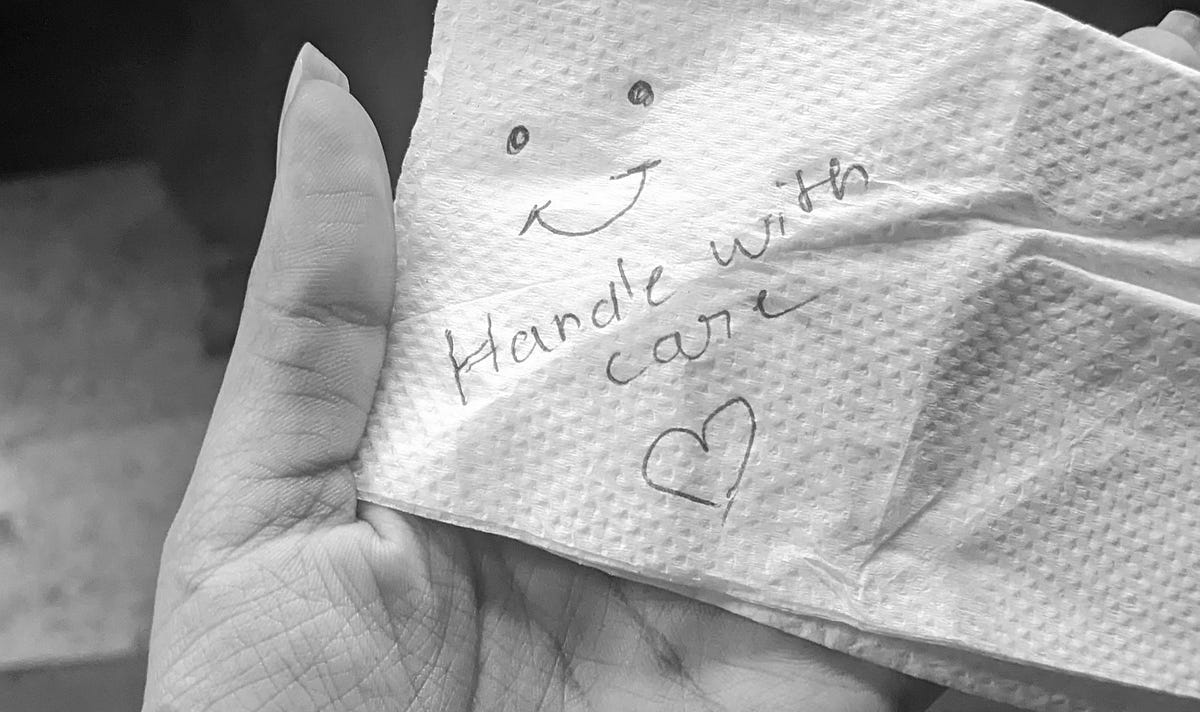 Handle with
care